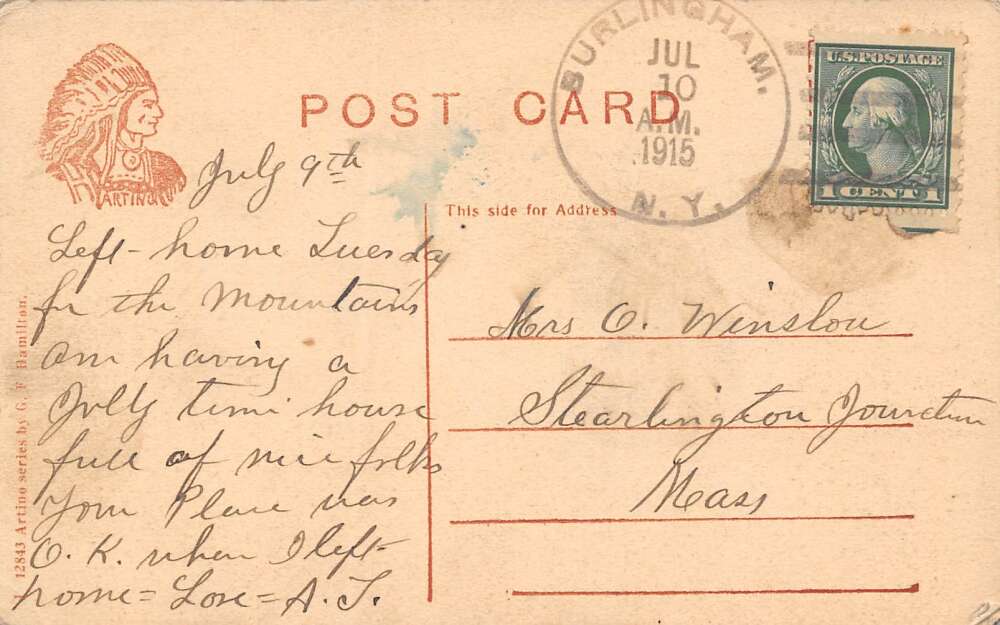 POST CARD
ARTINO
BURLINGHAM.
JUL
10
A.M.
1915
N. Y.
U.S. POSTAGE
1 CENT 1
This side for Address
July 9th
Left - home Tuesday
for the Mountains
am having a
Jolly time house
full of nice folks
Your Place was
O. K. when I left -
home = Love = A. T.
Mrs O. Winslow
Stearlington Jounction
Mass
12843 Artino series by G. F. Hamilton.